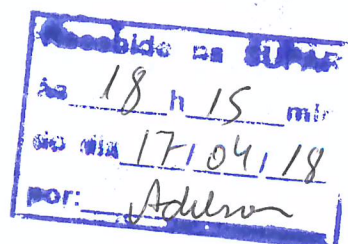 Recebido na SUPAR
às 18 h 15 min
do dia 17/04/18
por: Adelson